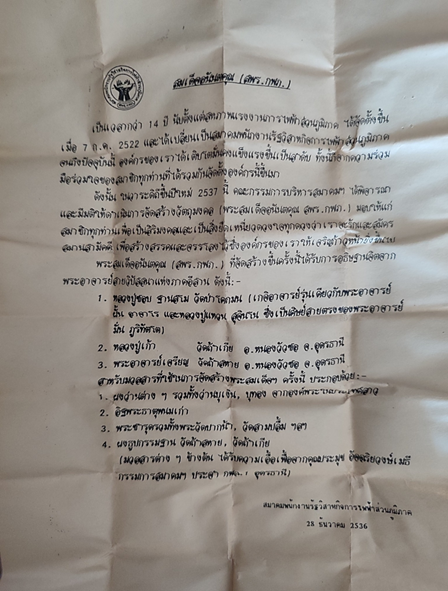 สมเด็จอนันตคุณ (สพร.กฟภ.)
เป็นเวลากว่า 14 ปี นับตั้งแต่สหภาพแรงงานการไฟฟ้าส่วนภูมิภาค ได้จัดตั้งขึ้น
เมื่อ 7 ก.ค. 2522 และได้เปลี่ยนเป็นสมาคมพนักงานรัฐวิสาหกิจการไฟฟ้าส่วนภูมิภาค
จนถึงปัจจุบันนี้ องค์กรของเราได้เติบโตมั่นคงแข็งแรงขึ้นเป็นลำดับ ทั้งนี้ก็จากความร่วม
มือร่วมใจของสมาชิกทุกท่านที่ได้รวมกันจัดตั้งองค์กรนี้ขึ้นมา
ดังนั้น ในวาระดิถีขึ้นปีใหม่ 2537 นี้ คณะกรรมการบริหารสมาคมฯ ได้พิจารณา
และมีมติให้ดำเนินการจัดสร้างวัตถุมงคล (พระสมเด็จอนันตคุณ สพร.กฟภ.) มอบให้แก่
สมาชิกทุกท่านเพื่อเป็นสิริมงคลและเป็นสิ่งยึดเหนี่ยวดวงใจทุกดวงว่า เราจะรักและสมัคร
สมานสามัคคี เพื่อสร้างสรรค์และจรรโลงไว้ซึ่งองค์กรของเราให้เจริญก้าวหน้า
พระสมเด็จอนันตคุณ (สพร.กฟภ.) ที่จัดสร้างขึ้นครั้งนี้ได้รับการอธิษฐานจิตจาก
พระอาจารย์สายวิปัสสนาแห่งภาคอีสาน ดังนี้:-
1. หลวงปู่ชอบ ฐานสโม วัดป่าโคกมน (เกจิอาจารย์รุ่นเดียวกับพระอาจารย์
ฝั้น อาจาโร และหลวงปู่แหวน สุจิณโณ ซึ่งเป็นศิษย์สายตรงของพระอาจารย์
มั่น ภูริทัตโต)
2. หลวงปู่เก้า วัดถ้ำเกีย อ.หนองวัวซอ จ.อุดรธานี
3. พระอาจารย์เจริญ วัดถ้ำสหาย อ.หนองวัวซอ จ.อุดรธานี
สำหรับมวลสารที่ใช้ในการจัดสร้างพระสมเด็จฯ ครั้งนี้ ประกอบด้วย:-
1. ผงว่านต่าง ๆ รวมทั้งว่านบุเงิน, บุทอง จากองค์พระ
2. อิฐพระธาตุพนมเก่า
3. พระชำรุดรวมทั้งพระวัดปากน้ำ, วัดสามปลื้ม ฯลฯ
4. ผงธูปกรรมฐาน วัดถ้ำสหาย, วัดถ้ำเกีย
(มวลสารต่าง ๆ ข้างต้น ได้รับความเอื้อเฟื้อจากคุณประมุข
กรรมการสมาคมฯ ประจำ กฟภ. อุดรธานี)
สมาคมพนักงานรัฐวิสาหกิจการไฟฟ้าส่วนภูมิภาค
28 ธันวาคม 2536